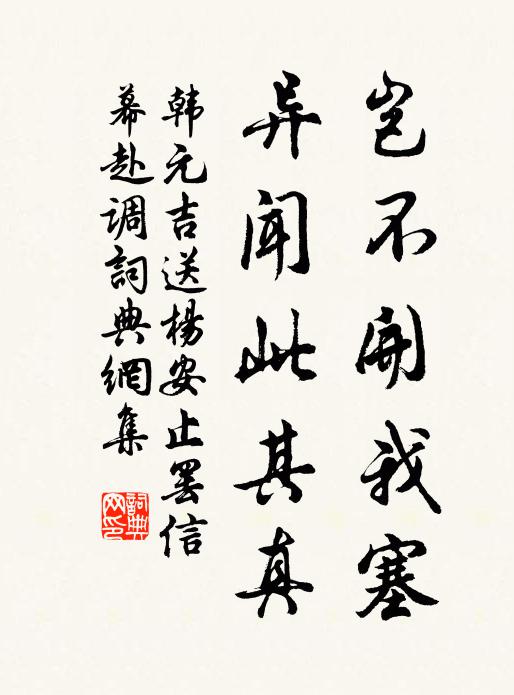 岂不开我塞
异闻此其真
韩元吉送杨安止罢信
幕赴调词典網集
詞典网印